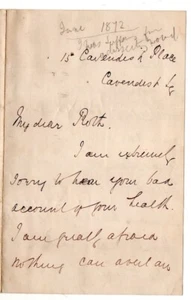 June 1872
15 Cavendish Place
Cavendish Sq
My dear Roth.
I am extremely
sorry to hear your bad
account of your health.
I am greatly afraid
nothing can